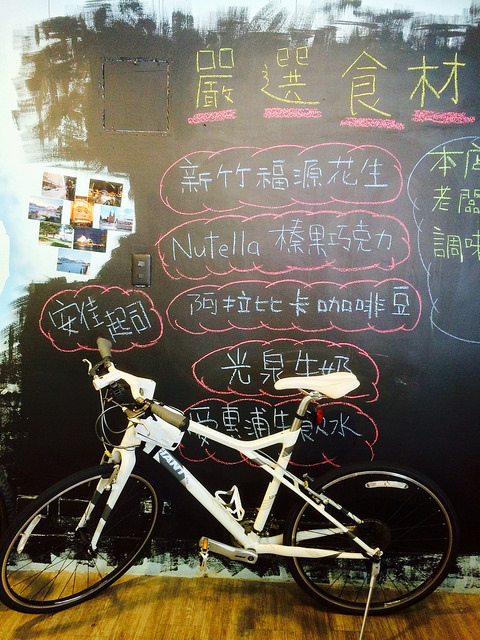 嚴選食材
新竹福源花生
Nutella 榛果巧克力
阿拉比卡咖啡豆
安佳起司
光泉牛奶
愛惠浦生飲水
本店
老闆
調味
GIANT